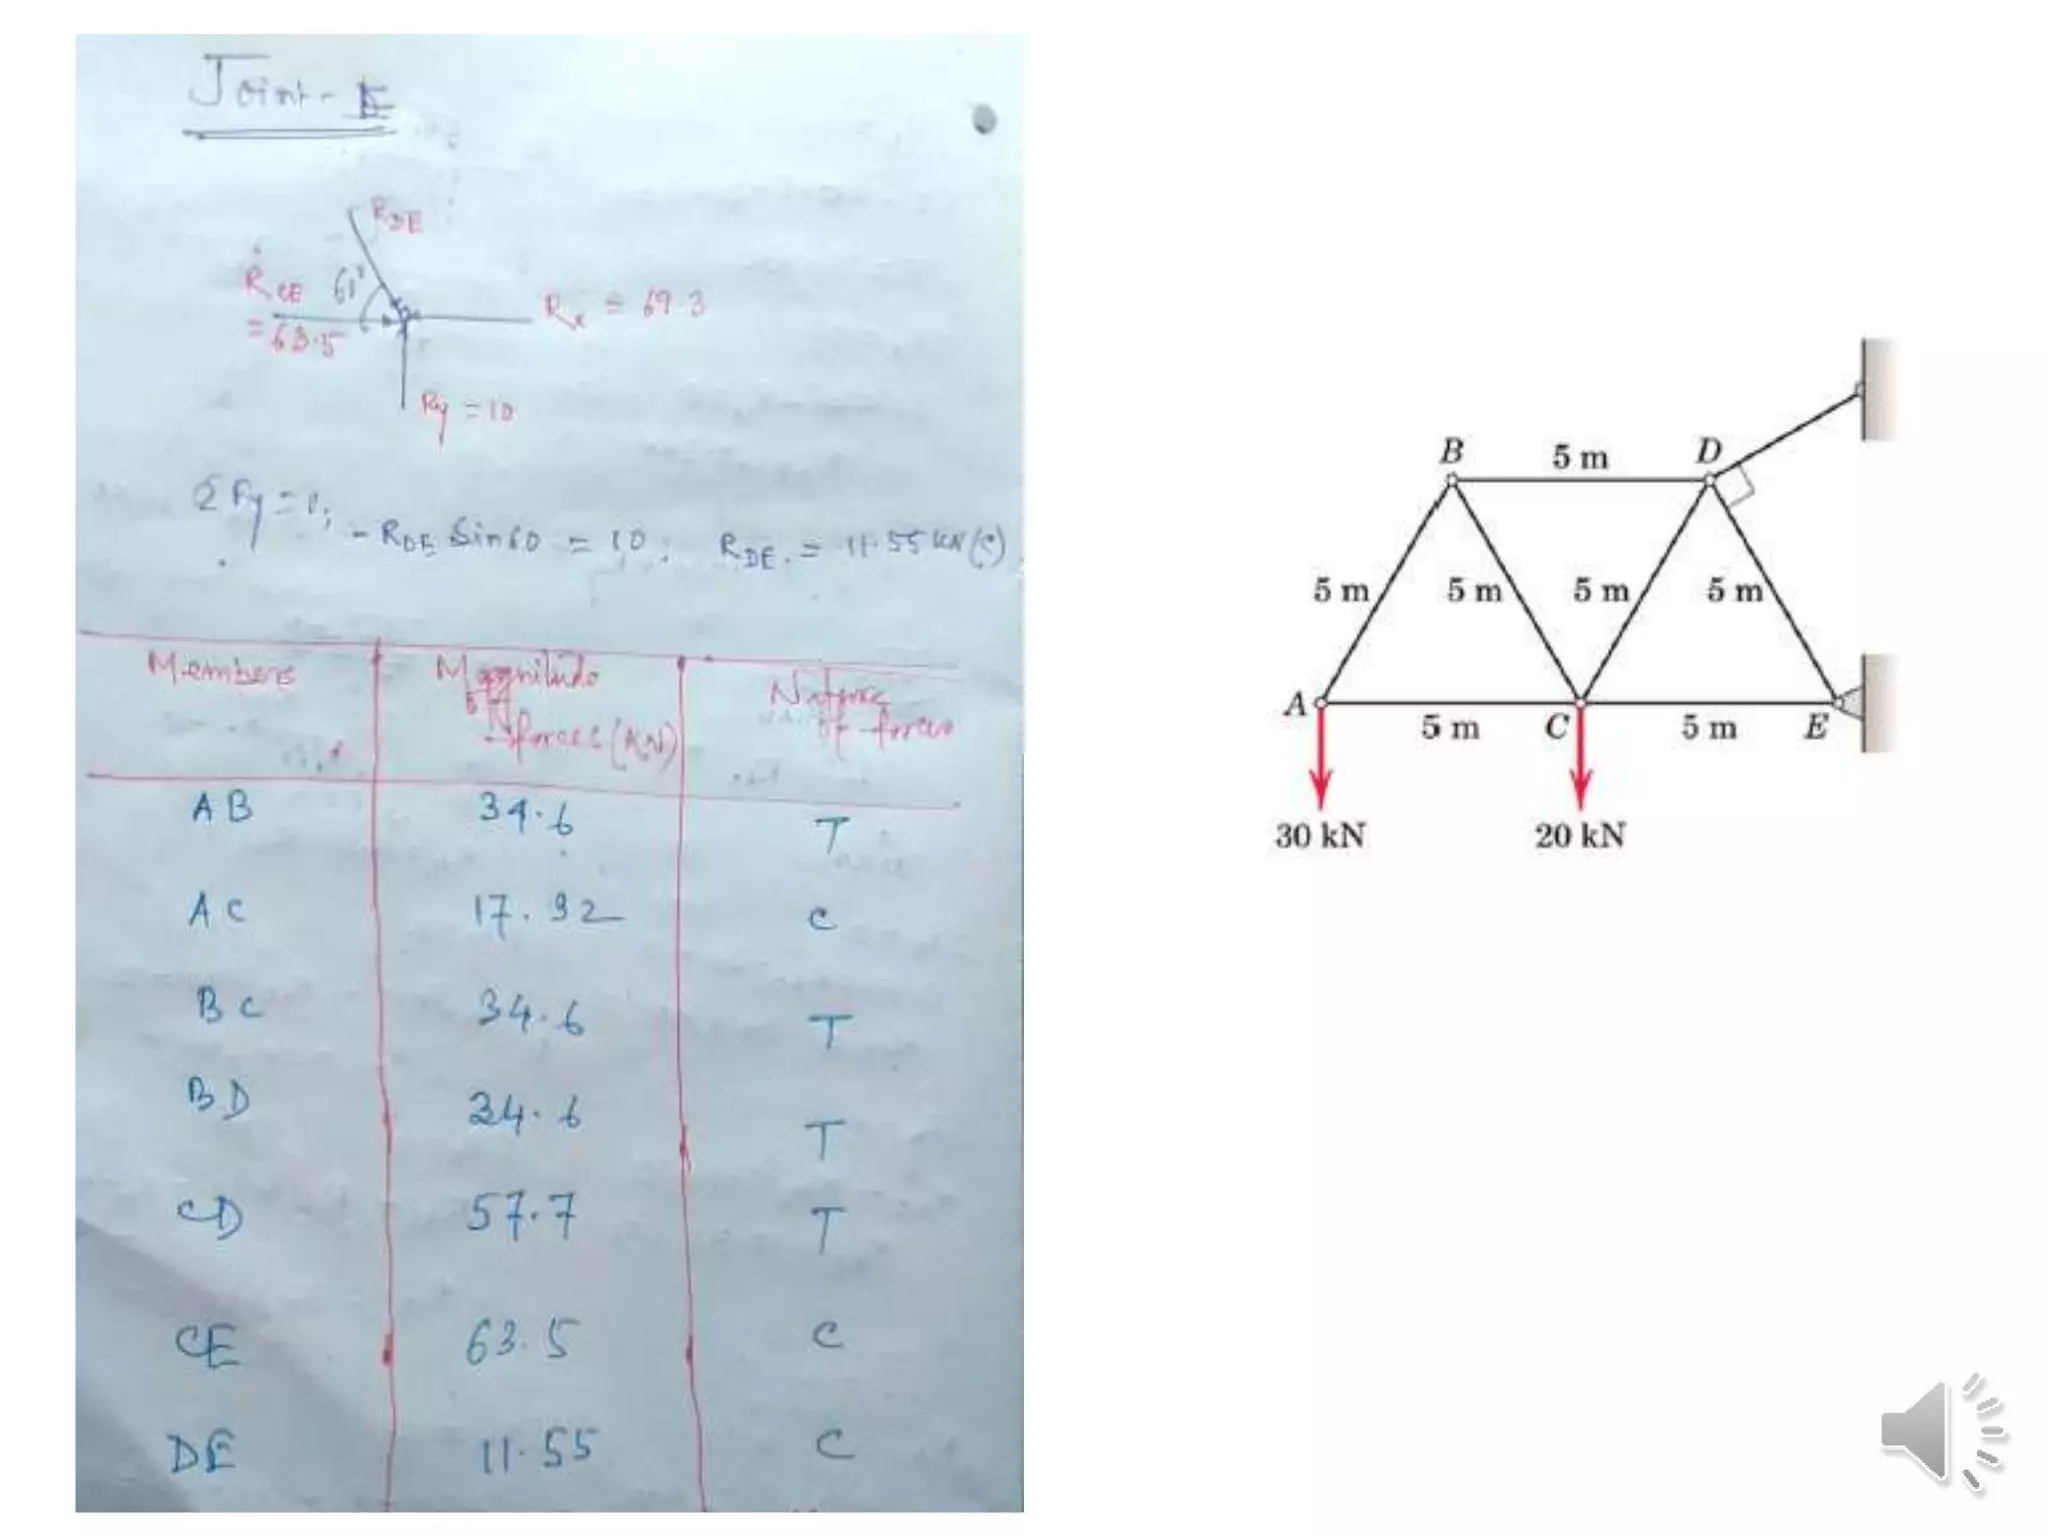 Joint - E
RDE
RCE 60°
= 63.5
Rx = 69.3
Ry = 10
ΣFy = 0; - RDE Sin60 = 10; RDE = 11.55 KN (C)
Members Magnitude Nature
of forces (KN) of forces
AB 34.6 T
AC 17.32 C
BC 34.6 T
BD 34.6 T
CD 57.7 T
CE 63.5 C
DE 11.55 C
B 5 m D
5 m 5 m 5 m 5 m
A 5 m C 5 m E
30 kN 20 kN